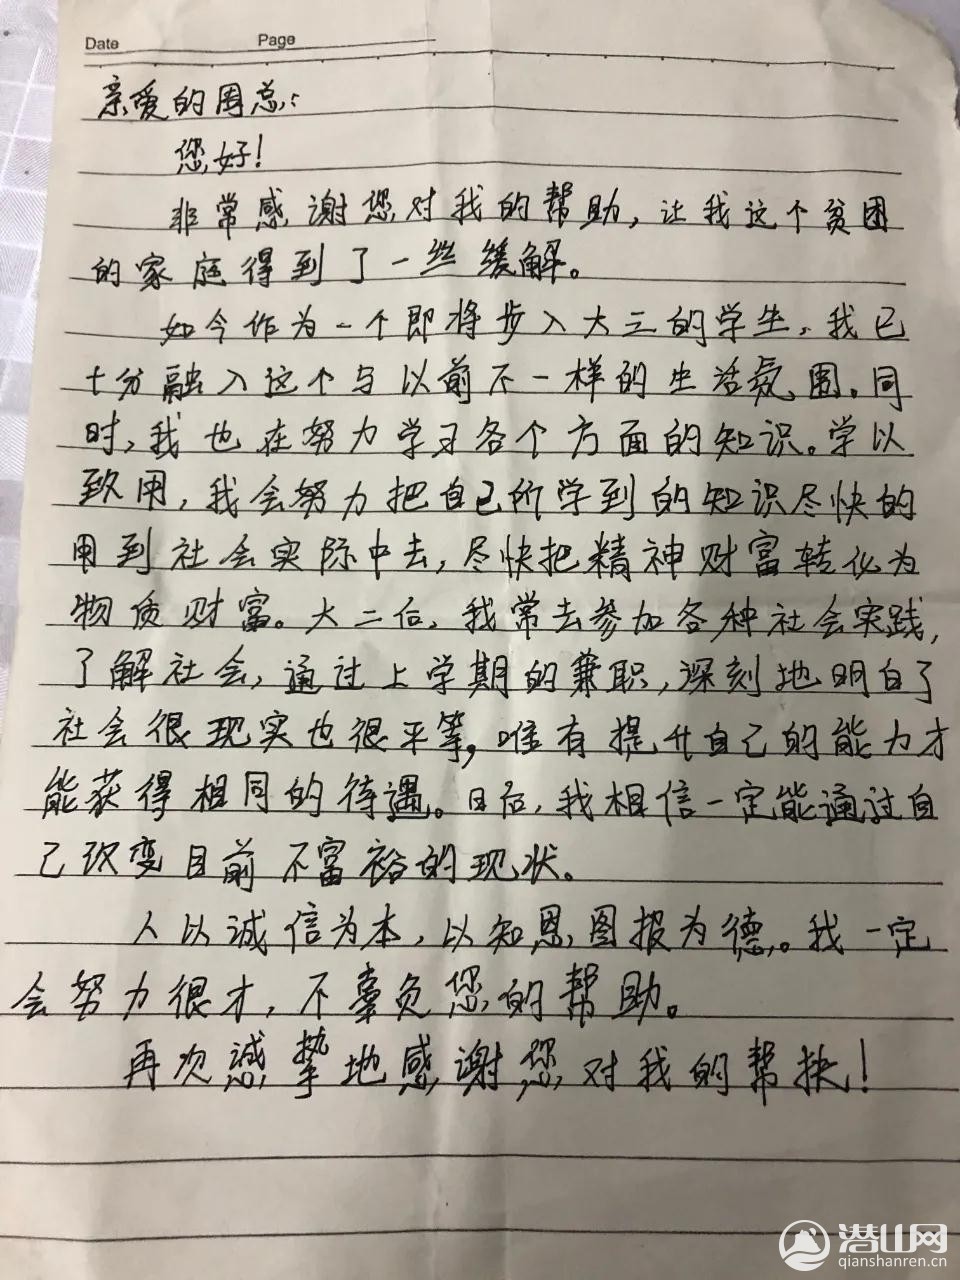 Date Page
亲爱的周总:
您好!
非常感谢您对我的帮助,让我这个贫困
的家庭得到了一丝缓解。
如今作为一个即将步入大三的学生,我已
十分融入这个与以前不一样的生活氛围。同
时,我也在努力学习各个方面的知识。学以
致用,我会努力把自己所学到的知识尽快的
用到社会实际中去,尽快把精神财富转化为
物质财富。大二后,我常去参加各种社会实践,
了解社会,通过上学期的兼职,深刻地明白了
社会很现实也很平等,唯有提升自己的能力才
能获得相同的待遇。日后,我相信一定能通过自
己改变目前不富裕的现状。
人以诚信为本,以知恩图报为德。我一定
会努力很才,不辜负您的帮助。
再次诚挚地感谢您对我的帮扶!
潜山网
qianshanren.cn